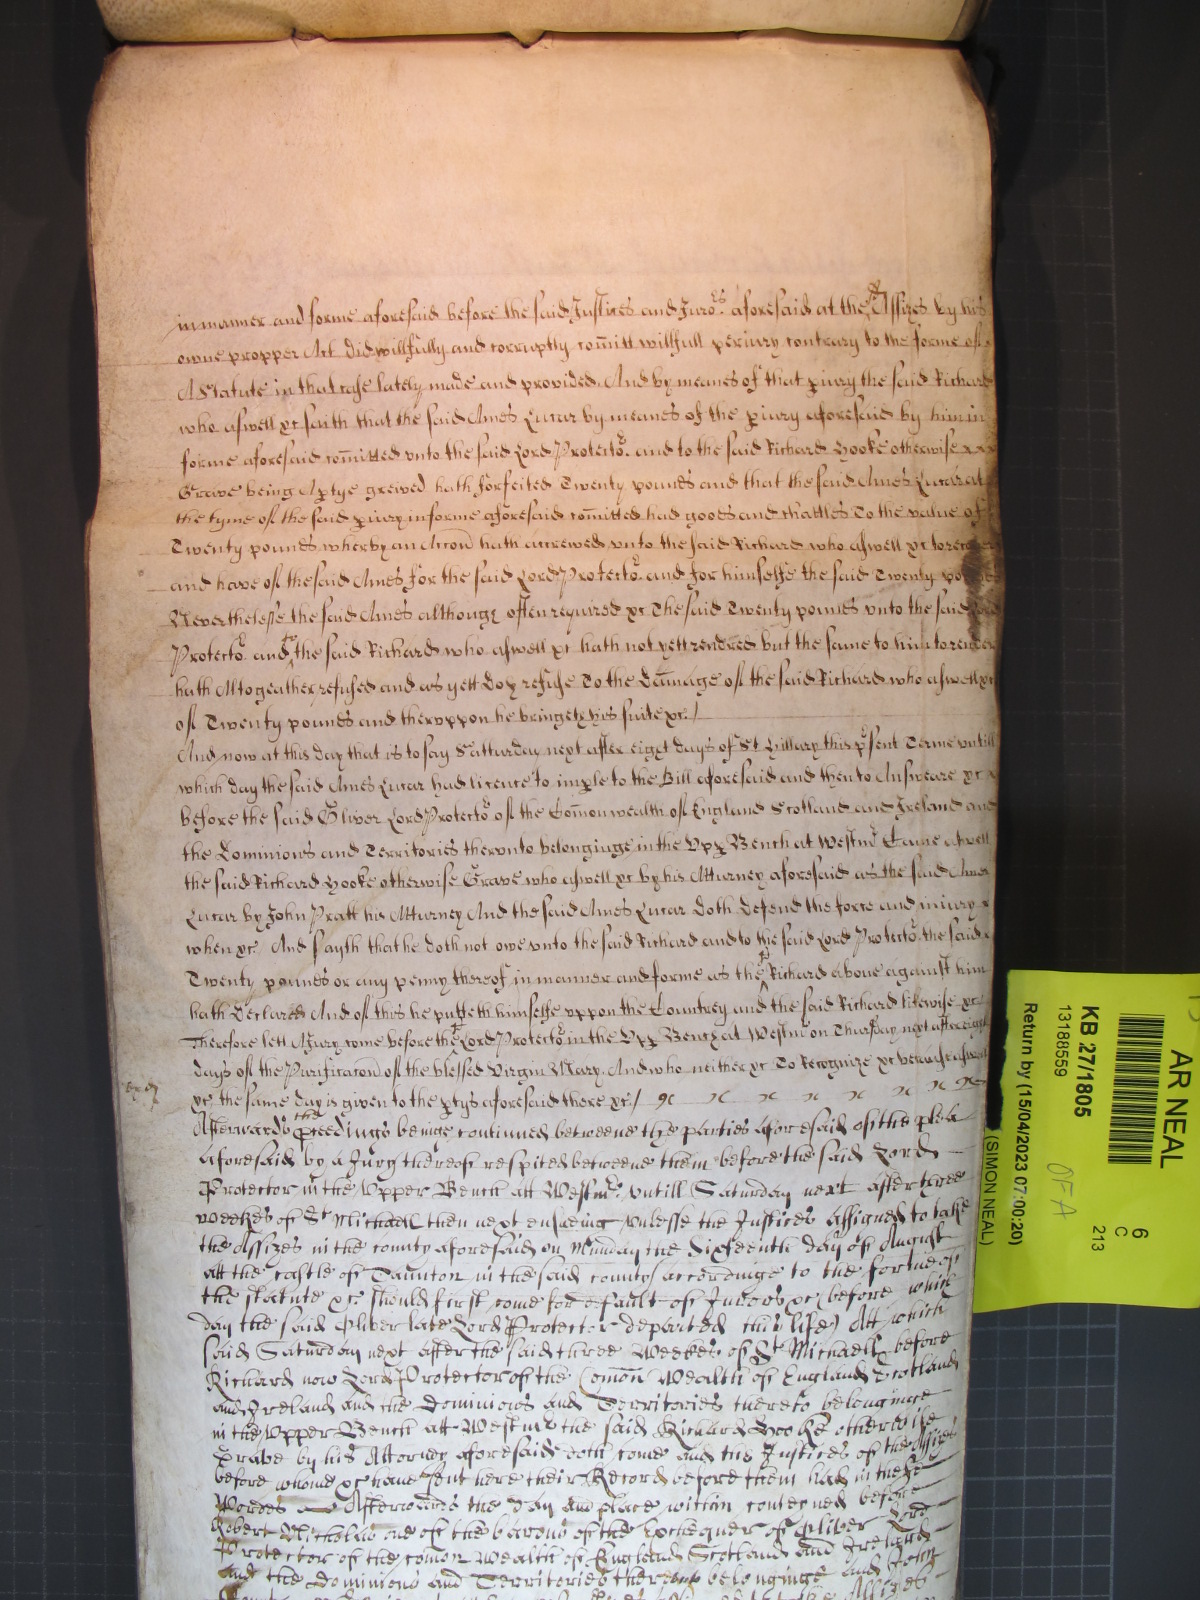 in manner and forme aforesaid before the said Justices and Juro.rs aforesaid at the sd Assizes by his
owne propper Act did willfully and corruptly comitt willfull periury contrary to the forme of a
A Statute in that case lately made and provided. And by meanes of that piury the said Richard
who aswell xc saith that the said Ames Lucar by meanes of the piury aforesaid by him in
forme aforesaid comitted vnto the said Lord Protecto.r and to the said Richard Hooke otherwise
Grave being A ptye greived hath forfeited Twenty pounds and that the said Ames Lucar at
the tyme of the said piury in forme aforesaid comitted had goods and chattles To the value of
Twenty pounds wherby an Accon hath accrewed vnto the said Richard who aswell xc to recover
and have of the said Ames for the said Lord Protecto.r and for himselfe the said Twenty pounds
Neverthelesse the said Ames although often required xc The said Twenty pounds vnto the said Lord
Protecto.r and to the said Richard who aswell xc hath not yett rendred but the same to him to render
hath Altogeather refused and as yett doth refuse To the Damage of the said Richard who aswell xc
of Twenty pounds and thervppon he bringeth his suite xc./
And now at this day that is to say Satturday next after eight days of St Hillary this psent Terme vntill
which day the said Ames Lucar had licence to imple to the Bill aforesaid and then to Answeare xc
before the said Oliver Lord Protecto.r of the Comonwealth of England Scotland and Ireland and
the Dominions and Territories thervnto belonginge in the Vpp Bench at Westmr Came aswell
the said Richard Hooke otherwise Grave who aswell xc by his Atturney aforesaid as the said Ames
Lucar by John Pratt his Atturney And the said Ames Lucar doth defend the force and iniury
when xc. And sayth that he doth not owe vnto the said Richard and to the said Lord Protecto.r the said
Twenty pounds or any penny thereof in manner and forme as the sd Richard above against him
hath Declared And of this he putteth himselfe vppon the Countrey and the said Richard likewise xc
Therefore lett A Jury come before the sd Lord Protecto.r in the Vpp Bench at Westmr on Thursday next after eight
days of the Purificacon of the blessed Virgin Mary. And who neither xc To Recognize xc because aswell
xc. the same day is given to the ptys aforesaid there xc./
Afterwards the pceedings beinge continued betweene the parties aforesaid of the plea
aforesaid by a Jury thereof respited betweene them before the said Lord
Protector in the Vpper Bench att Westmr. vntill Saturday next after three
weekes of St Michaell then next ensueing vnlesse the Justices Assigned to take
the Assizes in the county aforesaid on Munday the Sixteenth day of August
att the castle of Taunton in the said county accordinge to the forme of
the statute xc should first come for default of Jurors xc (before which
day the said Oliver late Lord Protector departed this life) Att which
said Saturday next after the said three Weekes of St Michaell before
Richard now Lord Protector of the Comon Wealth of England Scotland
and Ireland and the Dominions and Territories thereto belonginge
in the Vpper Bench att Westmr the said Richard Hooke otherwise
Grave by his Attorney aforesaid doth come and the Justices of the Assizes
before whome xc have sent here their Record before them had in these
Wordes Afterwardes the day and place within conteyned before
Robert Nicholas one of the barons of the Exchequer of Oliver Lord
Protector of the comon wealth of England Scotland and Ireland
and the Dominions and Territories thereunto belonginge and John
AR NEAL
KB 27/1805
13188559
Return by (15/04/2023 07:00:20)
(SIMON NEAL)
6
C
213
OFA